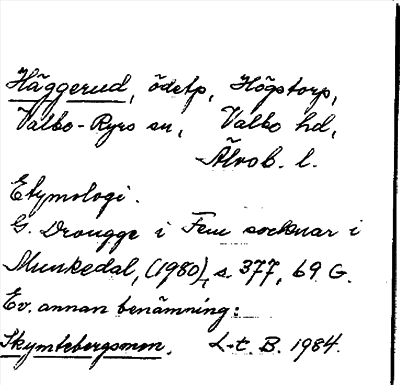 Häggerud, ödetp, Högstorp,
Valbo-Ryrs sn, Valbo hd,
Älvsb. l.
Etymologi.
G. Drougge i Fem socknar i
Munkedal, (1980), s. 377, 69 G.
Ev. annan benämning:
Skymtebergsmon. L-t. B. 1984.